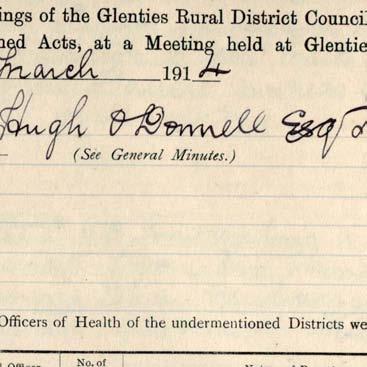 ings of the Glenties Rural District Counci
ned Acts, at a Meeting held at Glentie
March 1914
Hugh O'Donnell Esq
(See General Minutes.)
Officers of Health of the undermentioned Districts we
No. of